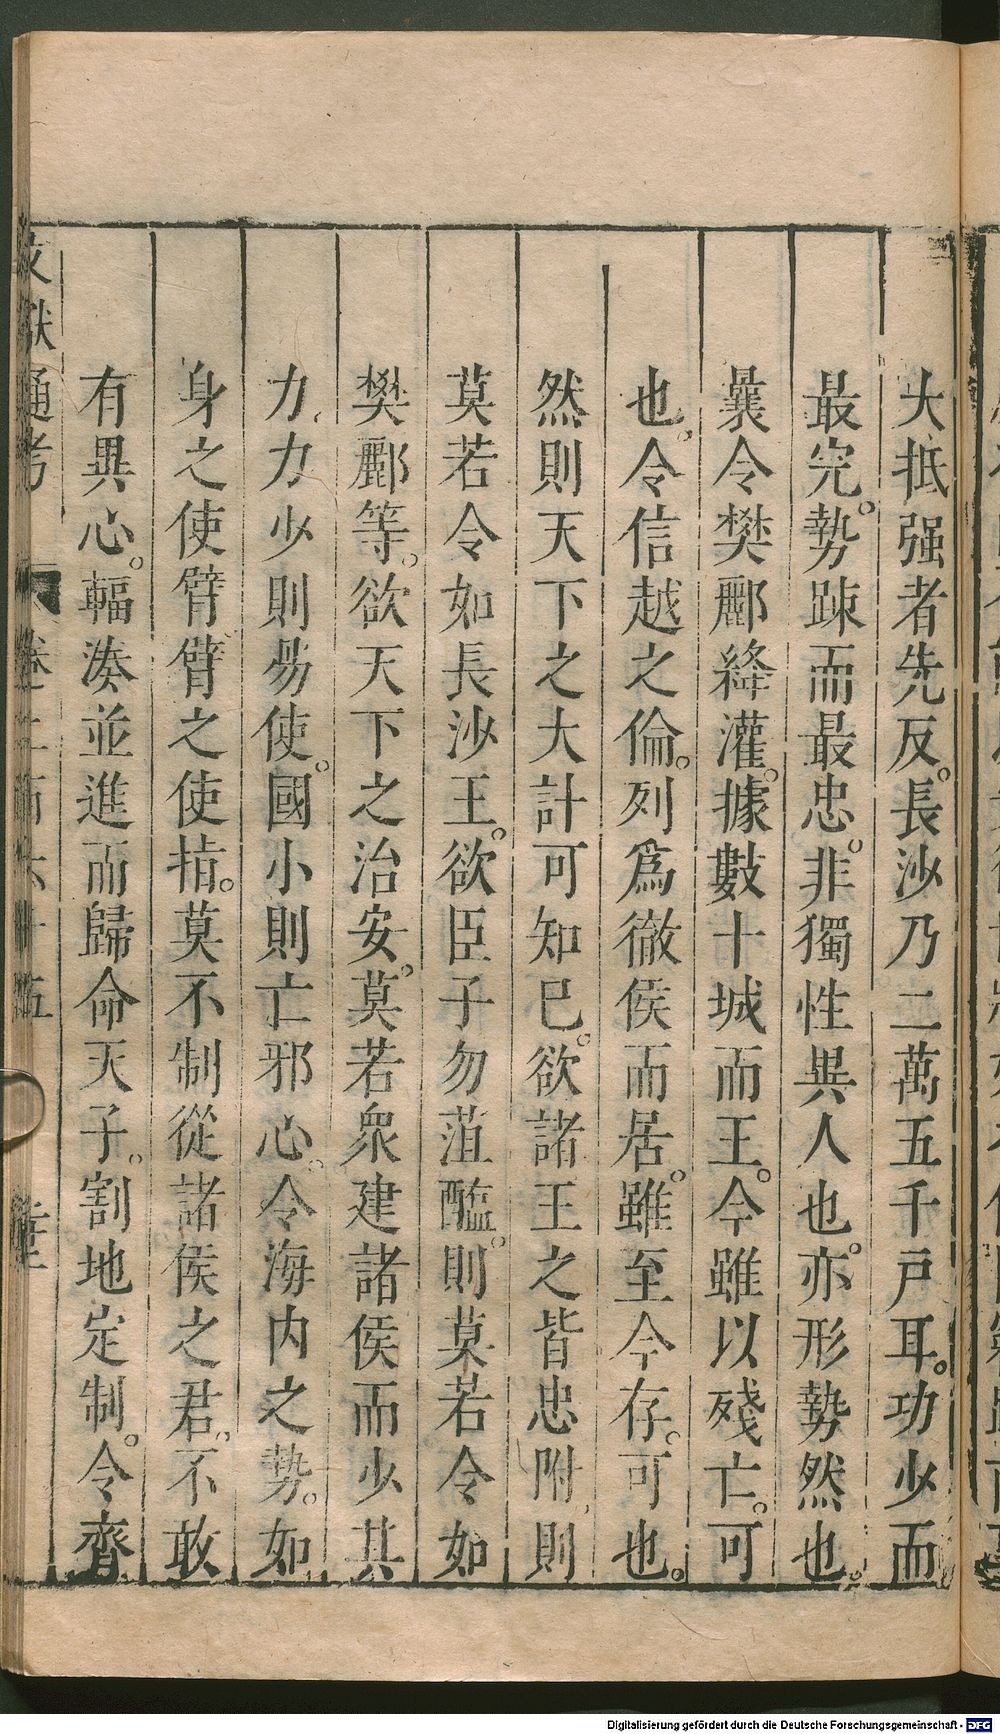 大抵强者先反。長沙乃二萬五千戸耳。功少而
最完。勢踈而最忠。非獨性異人也。亦形勢然也。
曩令樊酈絳灌。據數十城而王。今雖以殘亡。可
也。令信越之倫。列爲徹侯而居。雖至今存。可也。
然則天下之大計可知巳。欲諸王之皆忠附、則
莫若令如長沙王。欲臣子勿菹醢。則莫若令如
樊酈等。欲天下之治安。莫若衆建諸侯而少其
力、力少則易使。國小則亡邪心。令海内之勢。如
身之使臂臂之使指。莫不制從諸侯之君。不敢
有異心。輻湊並進而歸命天子。割地定制。令齊
文獻通考 卷二百六十五
Digitalisierung gefördert durch die Deutsche Forschungsgemeinschaft - DFG